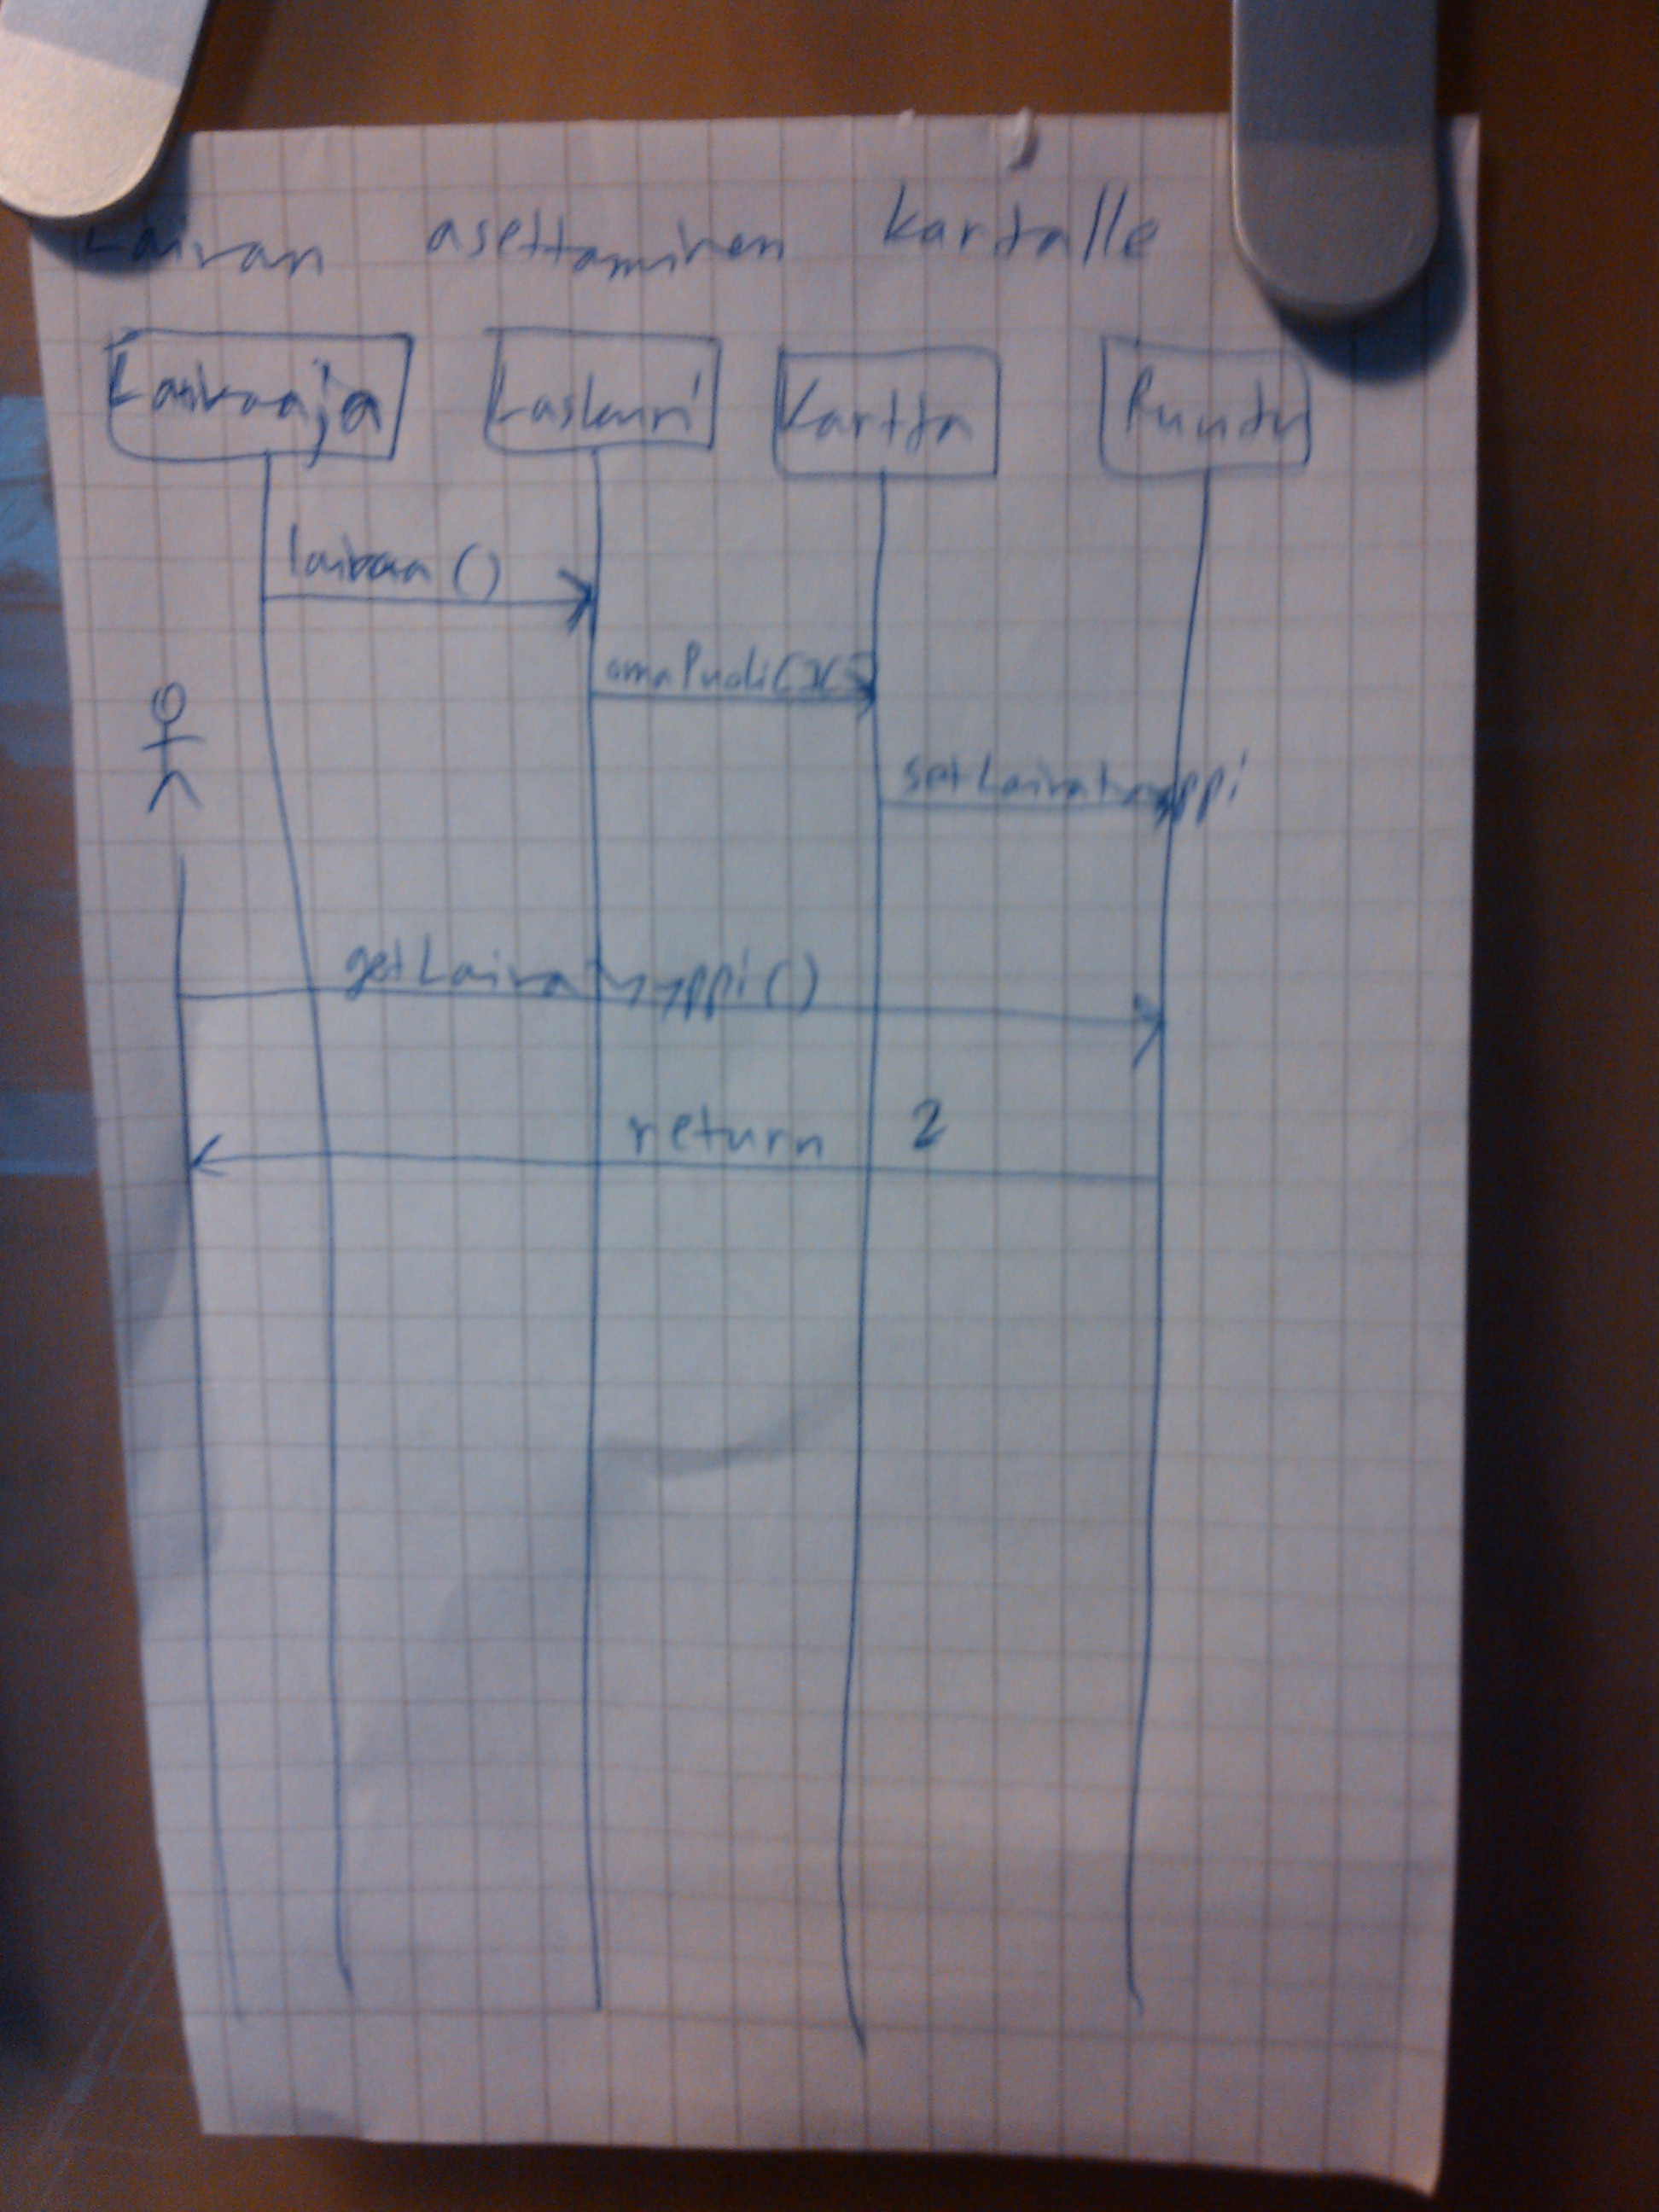 Laivan asettaminen kartalle
Laivaaja Laskuri Kartta Ruutu
laivaa()
omaPuoli
setLaivatyyppi
getLaivatyyppi()
return 2